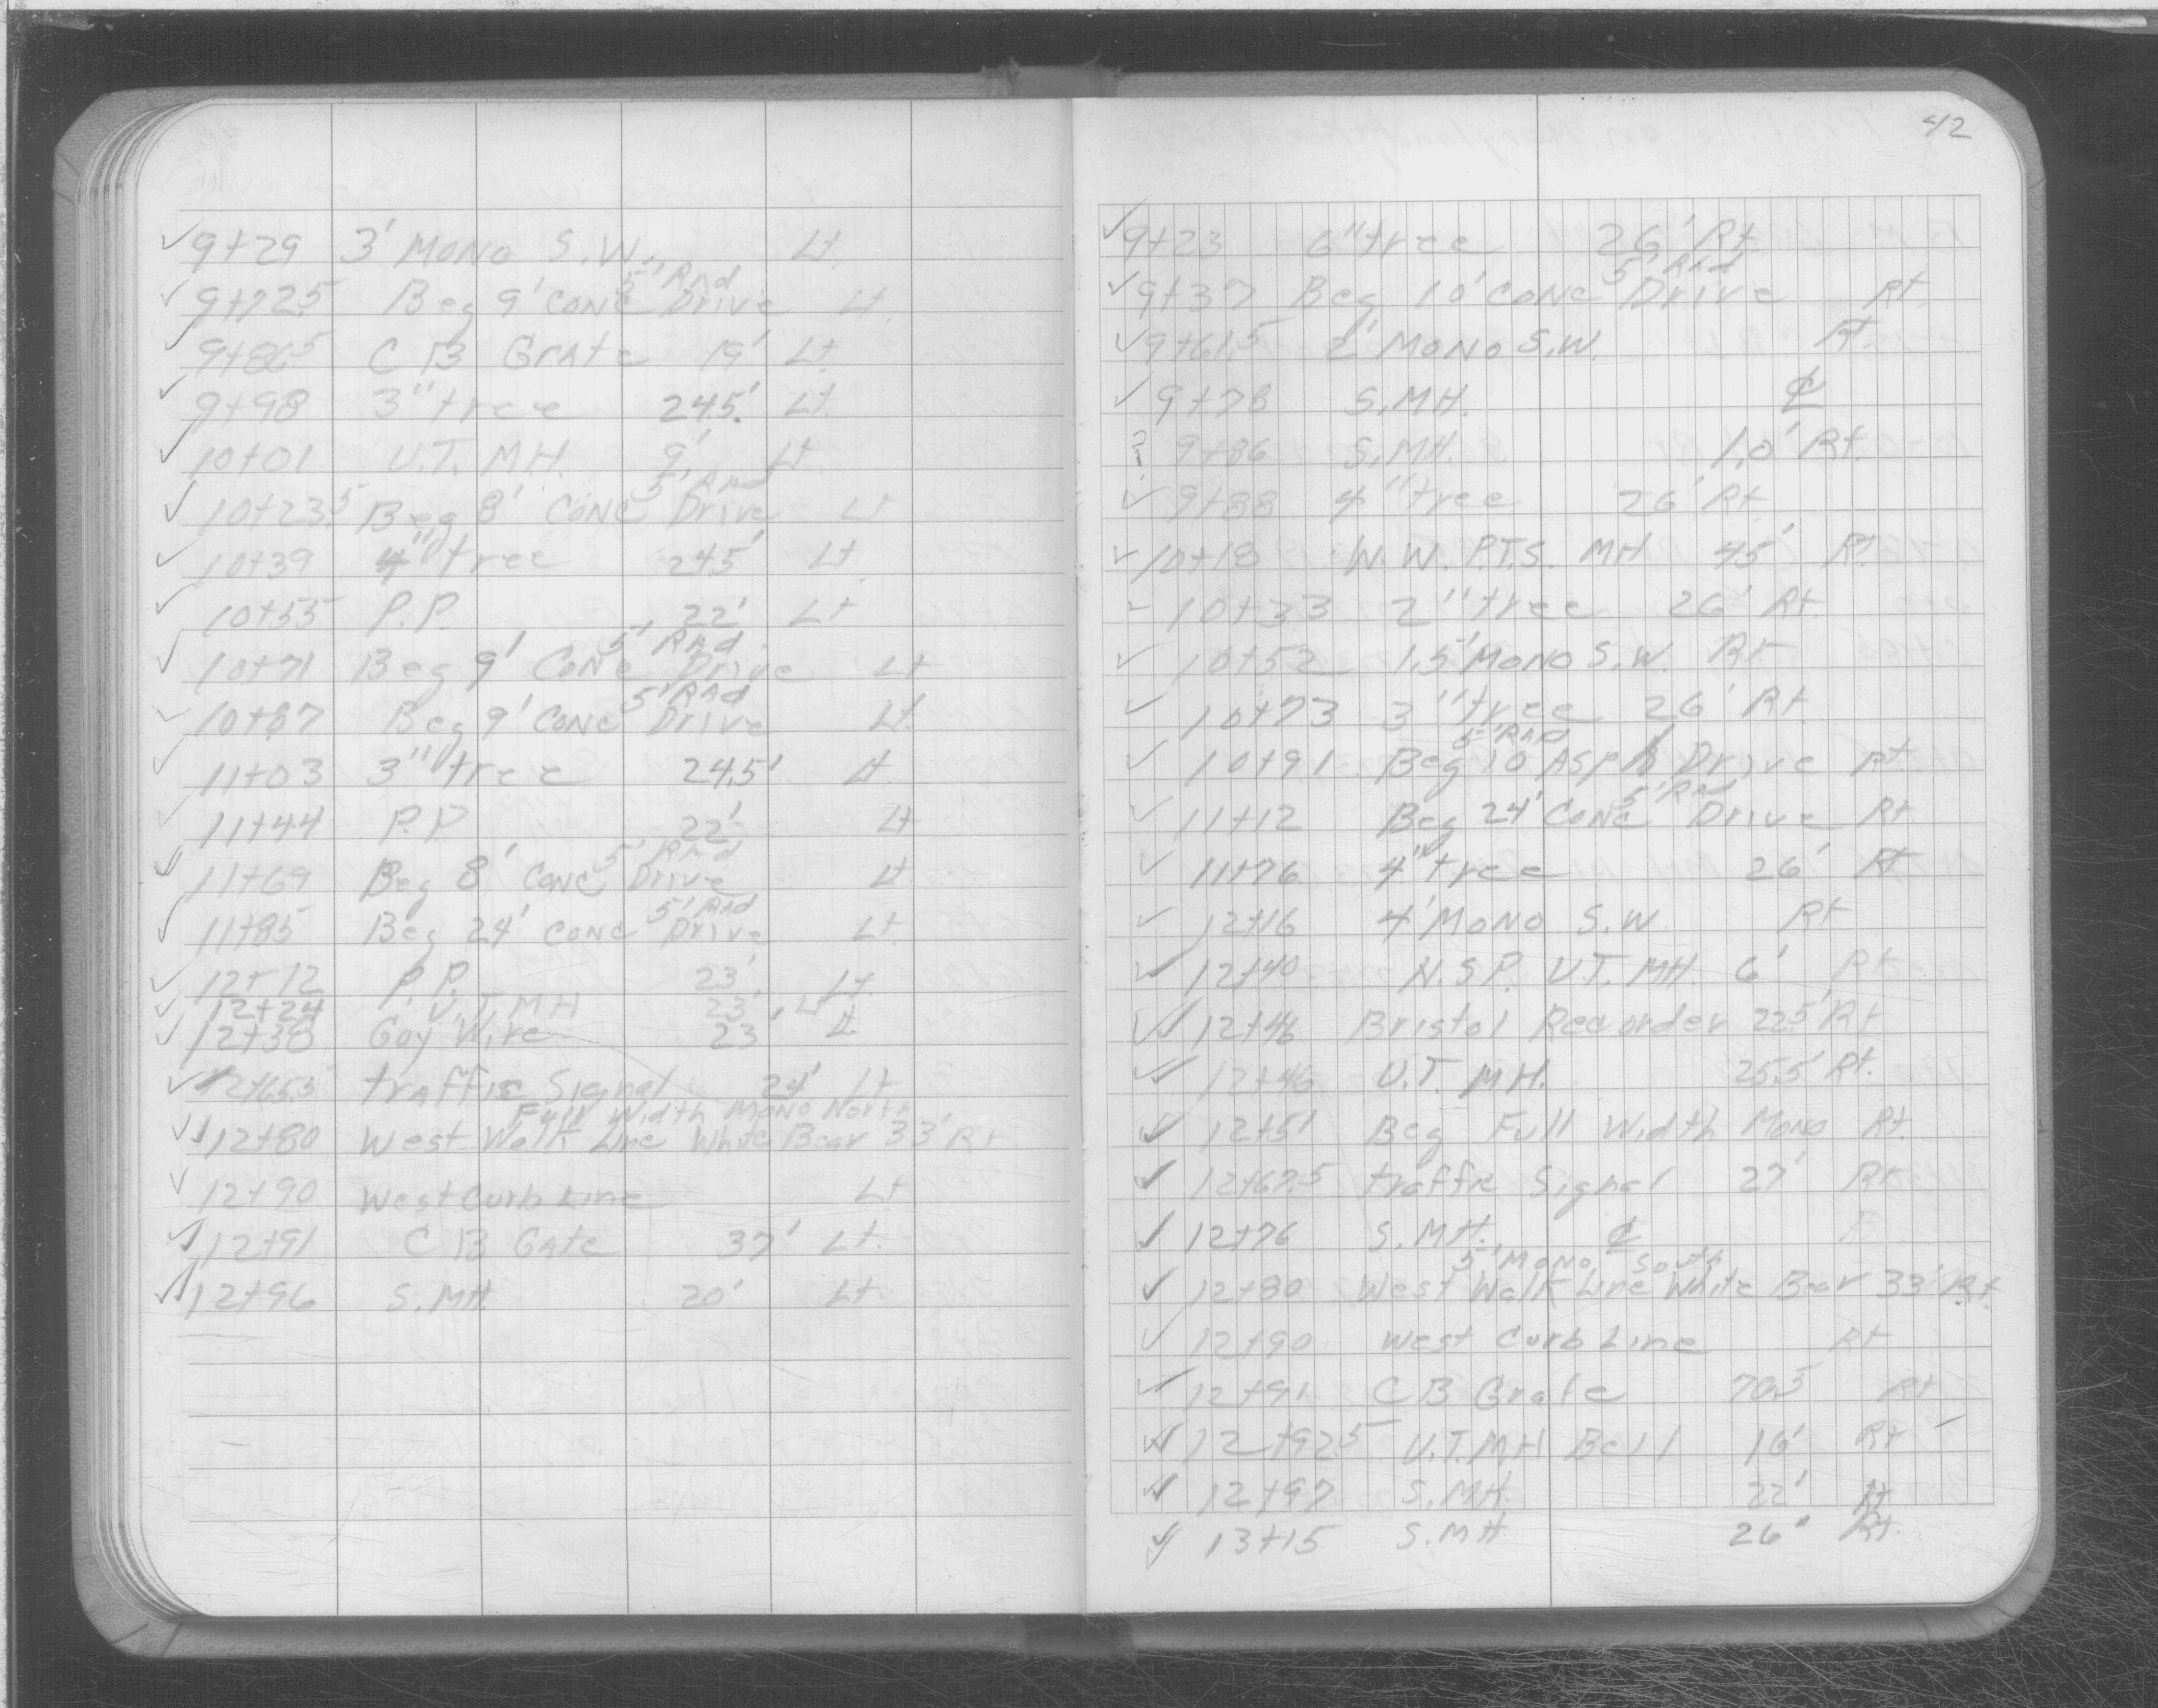 ✓ 9+29 3' MONO S.W. Lt.
5' RAd
✓ 9+72.5 Beg 9' CONC Drive Lt.
✓ 9+86.5 C B Grate 19' Lt.
✓ 9+98 3" tree 24.5' Lt.
✓ 10+01 U.T. M.H. 9' Lt.
5' RAd
✓ 10+23.5 Beg 8' CONC Drive Lt
✓ 10+39 4" tree 24.5' Lt.
✓ 10+55 P.P. 22' Lt
5' RAd.
✓ 10+71 Beg 9' CONC Drive Lt
5' RAd
✓ 10+87 Beg 9' CONC Drive Lt.
✓ 11+03 3" tree 24.5' Lt.
✓ 11+44 P.P 22' Lt
5' RAd
✓ 11+69 Beg 8' CONC Drive Lt.
5' RAd
✓ 11+85 Beg 24' CONC Drive Lt.
✓ 12+12 P.P. 23' Lt.
✓ 12+24 U.T. MH 23' Lt
✓ 12+38 Goy Wire 23' Lt.
✓ 12+65.5 traffic Signal 24' Lt
Full Width MONO North
✓ 12+80 West Walk Line White Bear 33' Rt
✓ 12+90 West Curb Line Lt
✓ 12+91 C B GAte 37' Lt.
✓ 12+96 S.MH. 20' Lt.
42
✓ 9+23 6" tree 26' Rt
5' RAd
✓ 9+37 Beg 10' CONC Drive Rt.
✓ 9+61.5 2' MONO S.W. Rt.
✓ 9+78 S.MH. ℄
? 9+86 S.MH. 1.0' Rt.
✓ 9+88 4" tree 26' Rt
✓ 10+18 W.W. P.T.S. MH 45' Rt.
10+33 2" tree 26' Rt
✓ 10+52 1.5' MONO S.W. Rt
✓ 10+73 3" tree 26' Rt.
5' RAd
✓ 10+91 Beg 10' ASPh Drive Rt
5' RAd
✓ 11+12 Beg 24' CONC Drive Rt
✓ 11+76 4" tree 26' Rt
✓ 12+16 4' MONO S.W. Rt
✓ 12+40 N.S.P. U.T. MH. 6' Rt
✓ 12+46 Bristol Recorder 22.5' Rt
✓ 12+46 U.T. MH. 25.5' Rt.
✓ 12+51 Beg Full Width Mono Rt.
✓ 12+67.5 traffic Signal 27' Rt
✓ 12+76 S.MH. ℄
5' MONO South
✓ 12+80 West Walk Line White Bear 33' Rt
✓ 12+90 West Curb Line Rt
✓ 12+91 C B Grate 70.5 Rt
✓ 12+92.5 U.T.MH Bell 16' Rt
✓ 12+97 S.MH. 22' Rt
✓ 13+15 S.MH 26" Rt.